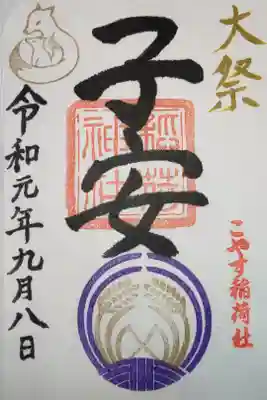 大祭
子安
稲荷神社
こやす稲荷社
令和元年九月八日